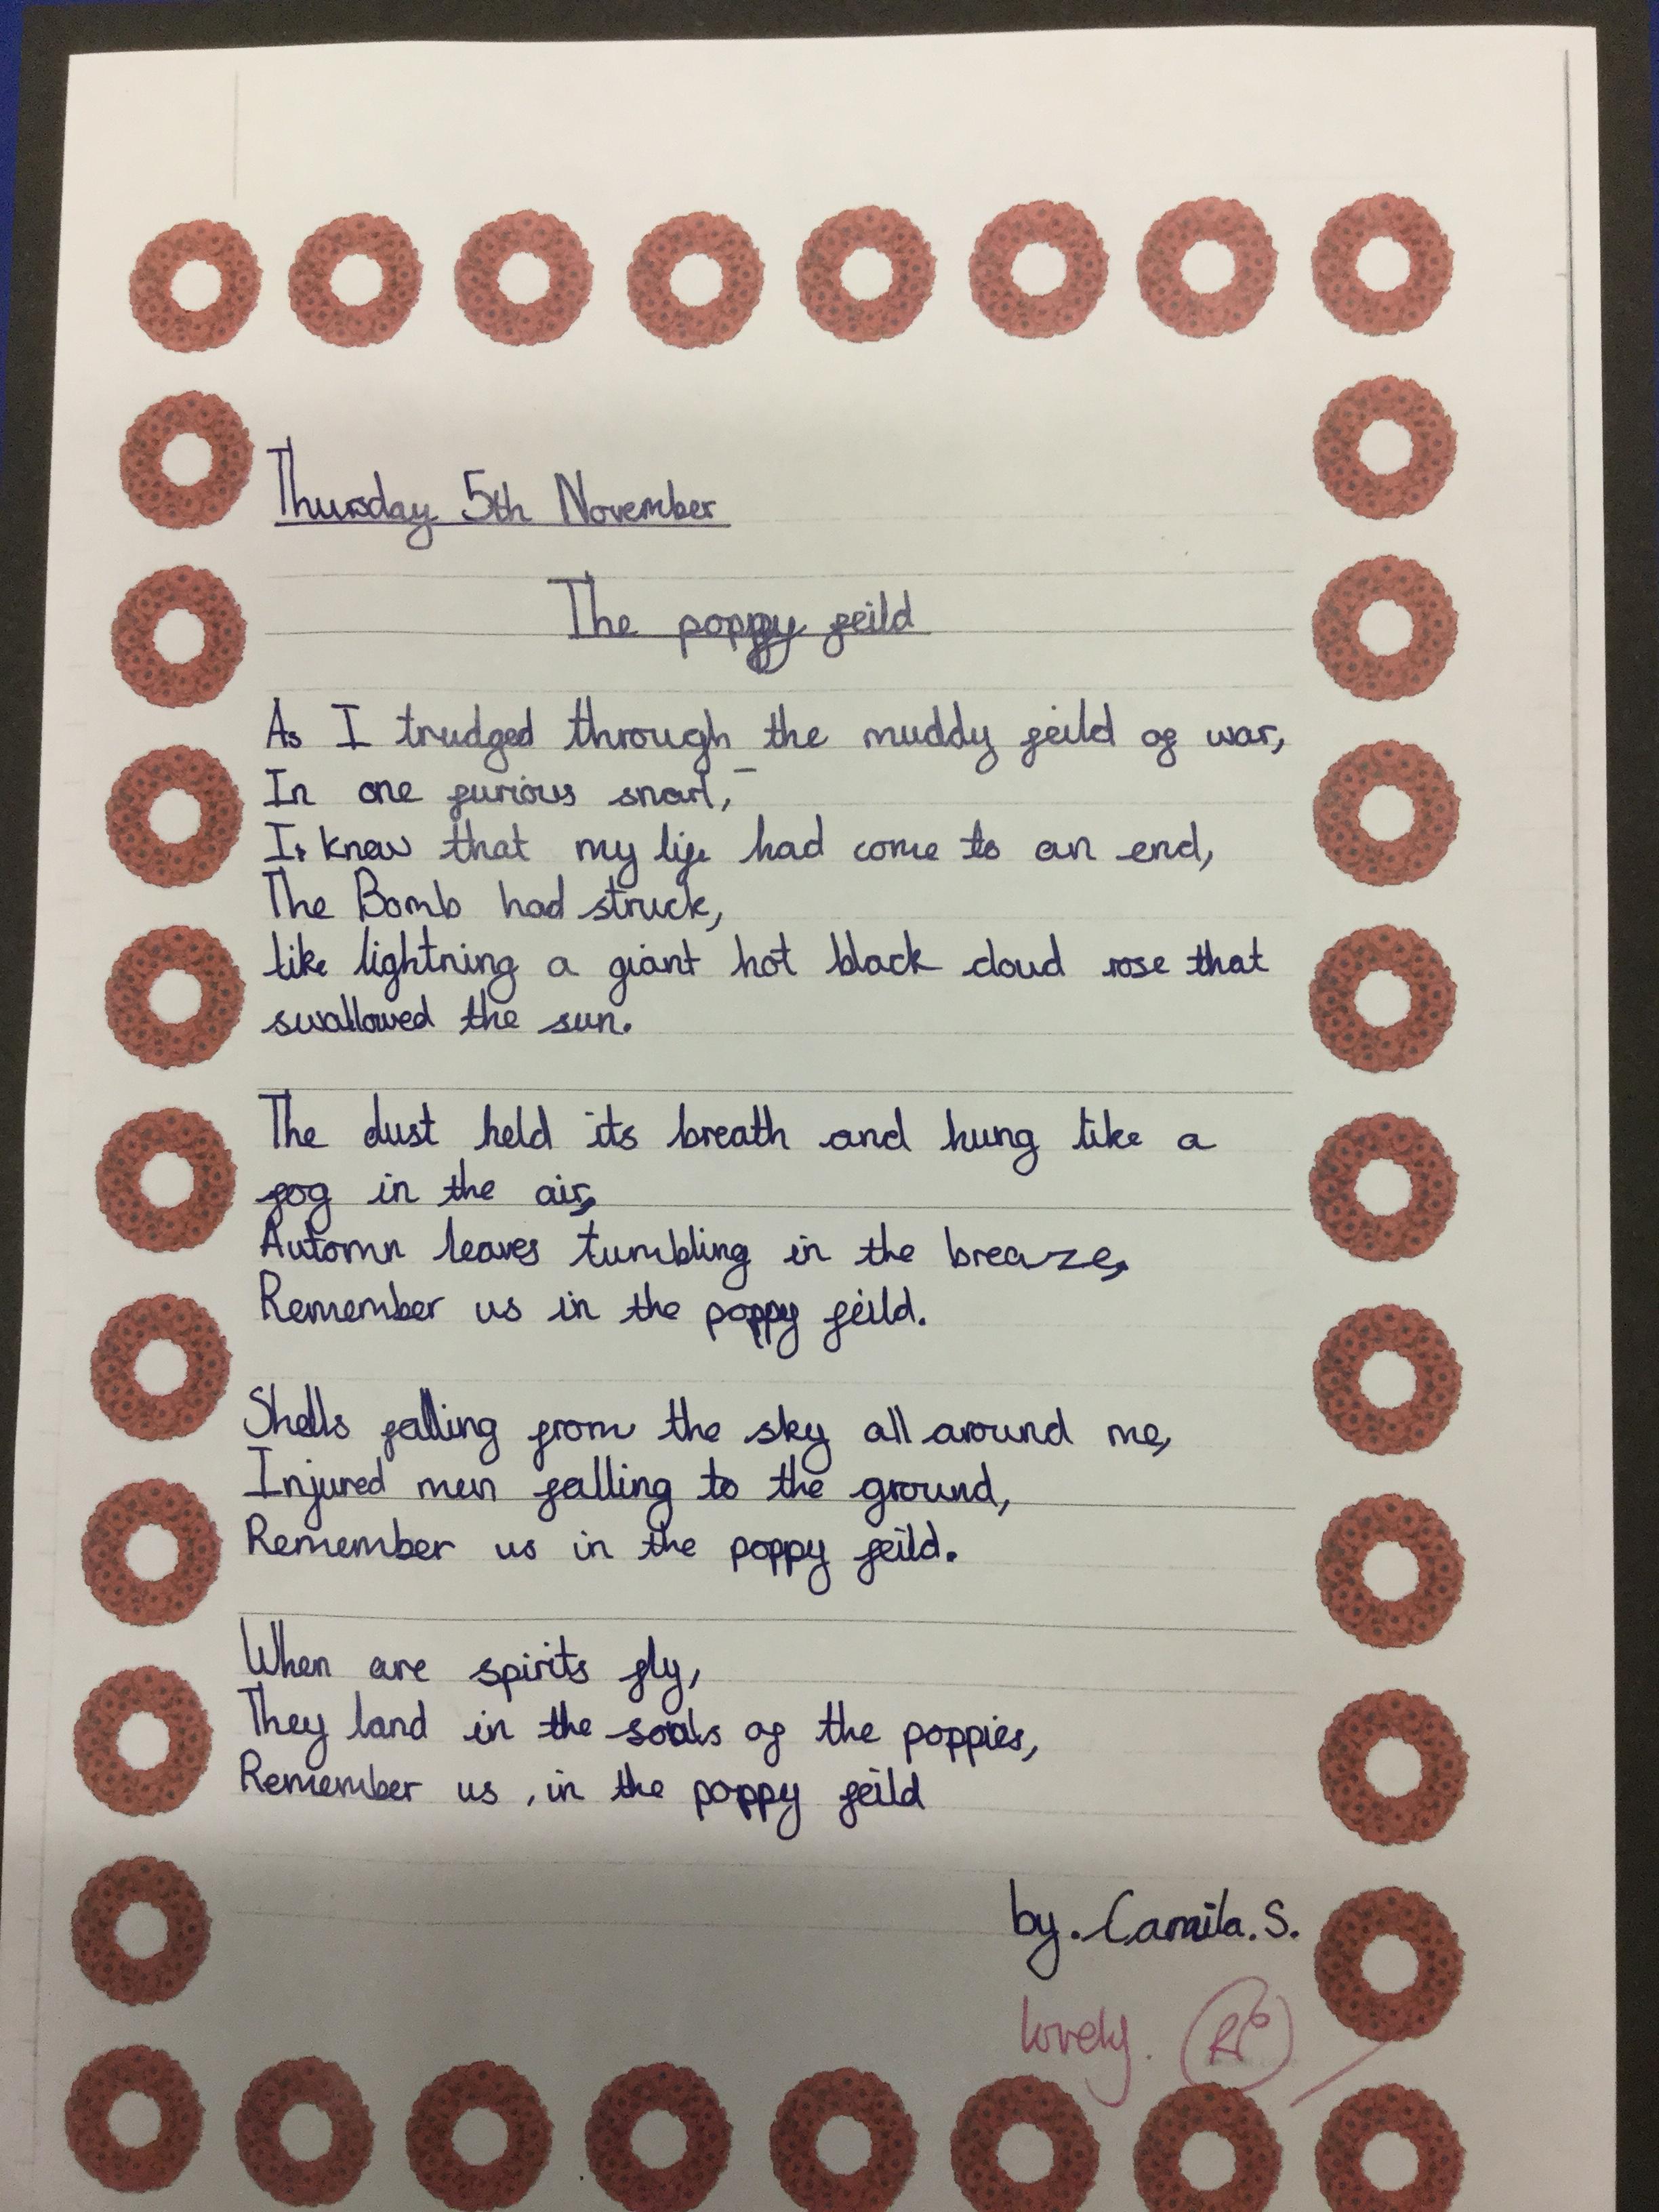 Thursday 5th November
The poppy feild
As I trudged through the muddy feild of war,
In one furious snarl,
I knew that my life had come to an end,
The Bomb had struck,
like lightning a giant hot black cloud rose that
swallowed the sun.
The dust held its breath and hung like a
fog in the air,
Automn leaves tumbling in the breaze,
Remember us in the poppy feild.
Shells falling from the sky all around me,
Injured men falling to the ground,
Remember us in the poppy feild.
When are spirits fly,
They land in the souls of the poppies,
Remember us, in the poppy feild
by. Camila. S.
lovely.